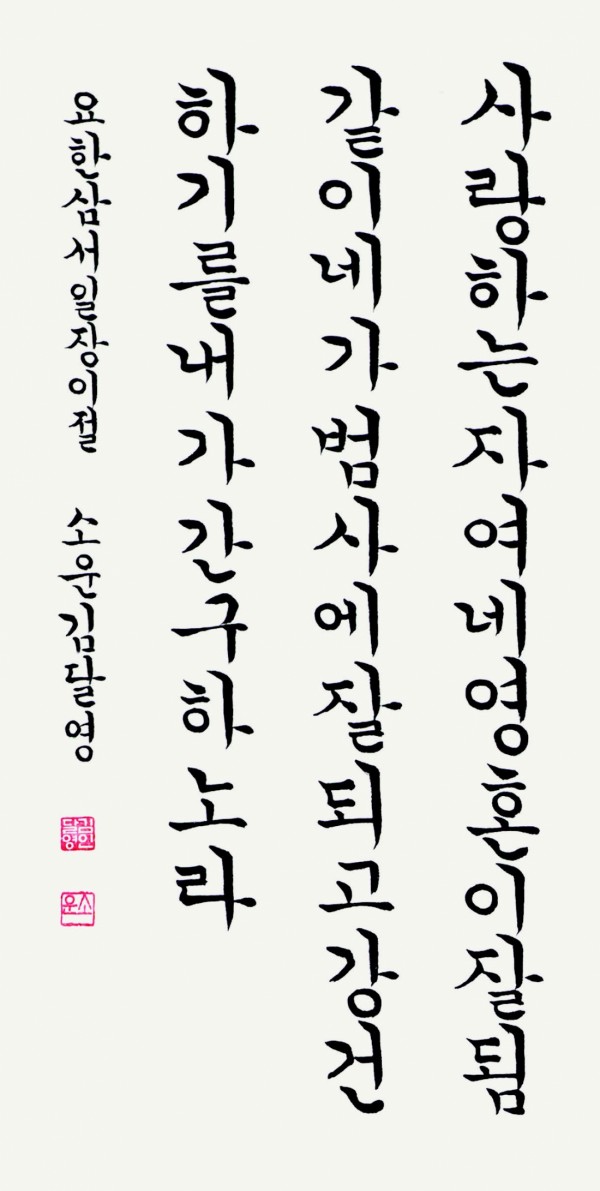 사랑하는자여네영혼이잘됨
같이네가범사에잘되고강건
하기를내가간구하노라
요한삼서일장이절 소운김달영